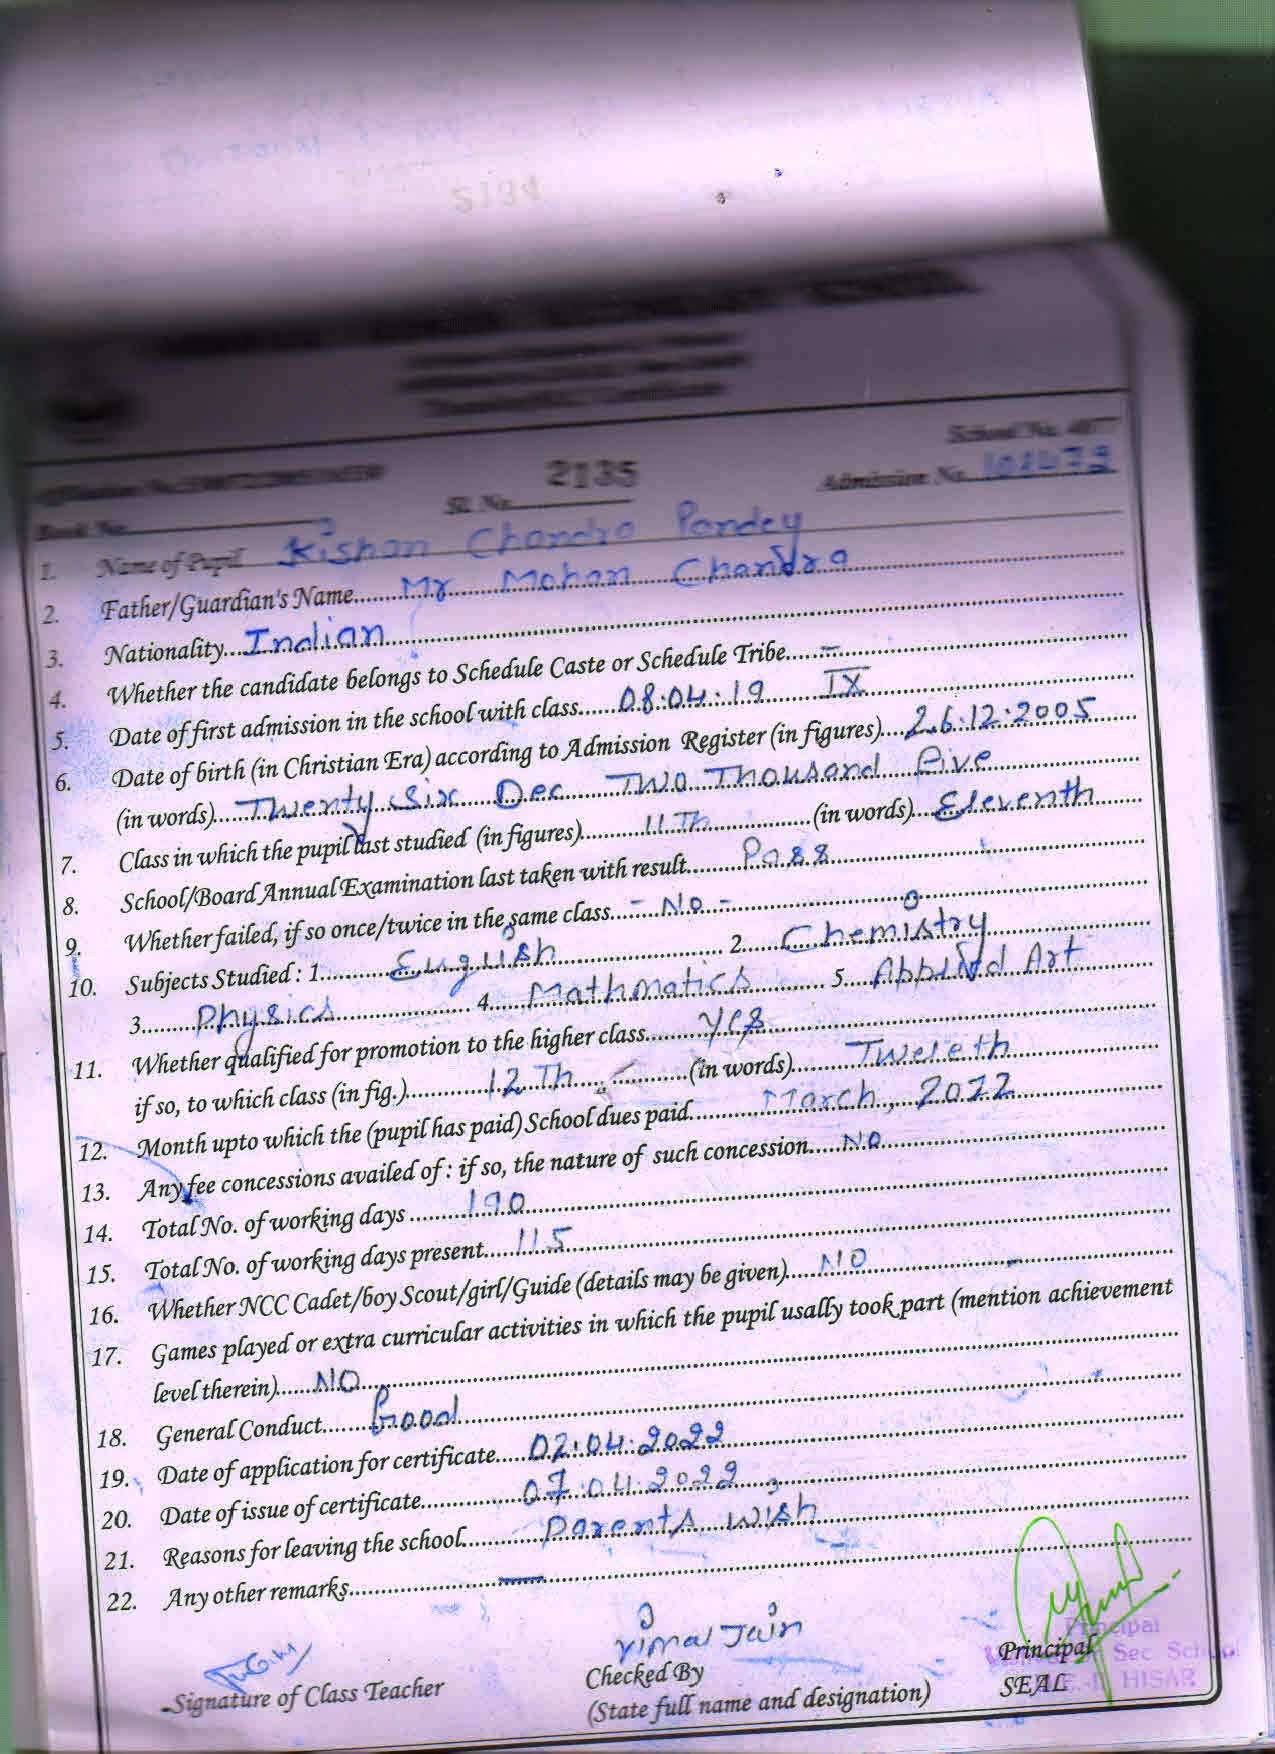 School No. 4077
2135
Sl. No.
Admission No. 101479
Book No.
1. Name of Pupil Kishan Chandra Pandey
2. Father/Guardian's Name Mr Mohan Chandra
3. Nationality Indian
4. Whether the candidate belongs to Schedule Caste or Schedule Tribe —
5. Date of first admission in the school with class 08.04.19 IX
6. Date of birth (in Christian Era) according to Admission Register (in figures) 26.12.2005
(in words) Twenty Six Dec Two Thousand Five
7. Class in which the pupil last studied (in figures) 11Th (in words) Eleventh
8. School/Board Annual Examination last taken with result Pass
9. Whether failed, if so once/twice in the same class - No -
10. Subjects Studied : 1. English 2. Chemistry
3. Physics 4. Mathmatics 5. Applied Art
11. Whether qualified for promotion to the higher class Yes
if so, to which class (in fig.) 12Th (in words) Tweleth
12. Month upto which the (pupil has paid) School dues paid March, 2022
13. Any fee concessions availed of : if so, the nature of such concession No
14. Total No. of working days 190
15. Total No. of working days present 115
16. Whether NCC Cadet/boy Scout/girl/Guide (details may be given) NO
17. Games played or extra curricular activities in which the pupil usally took part (mention achievement
level therein) NO
18. General Conduct Good
19. Date of application for certificate 02.04.2022
20. Date of issue of certificate 07.04.2022
21. Reasons for leaving the school Parents wish
22. Any other remarks —
Vimal Jain
Signature of Class Teacher
Checked By
(State full name and designation)
Principal
SEAL
Principal
Sec School
HISAR